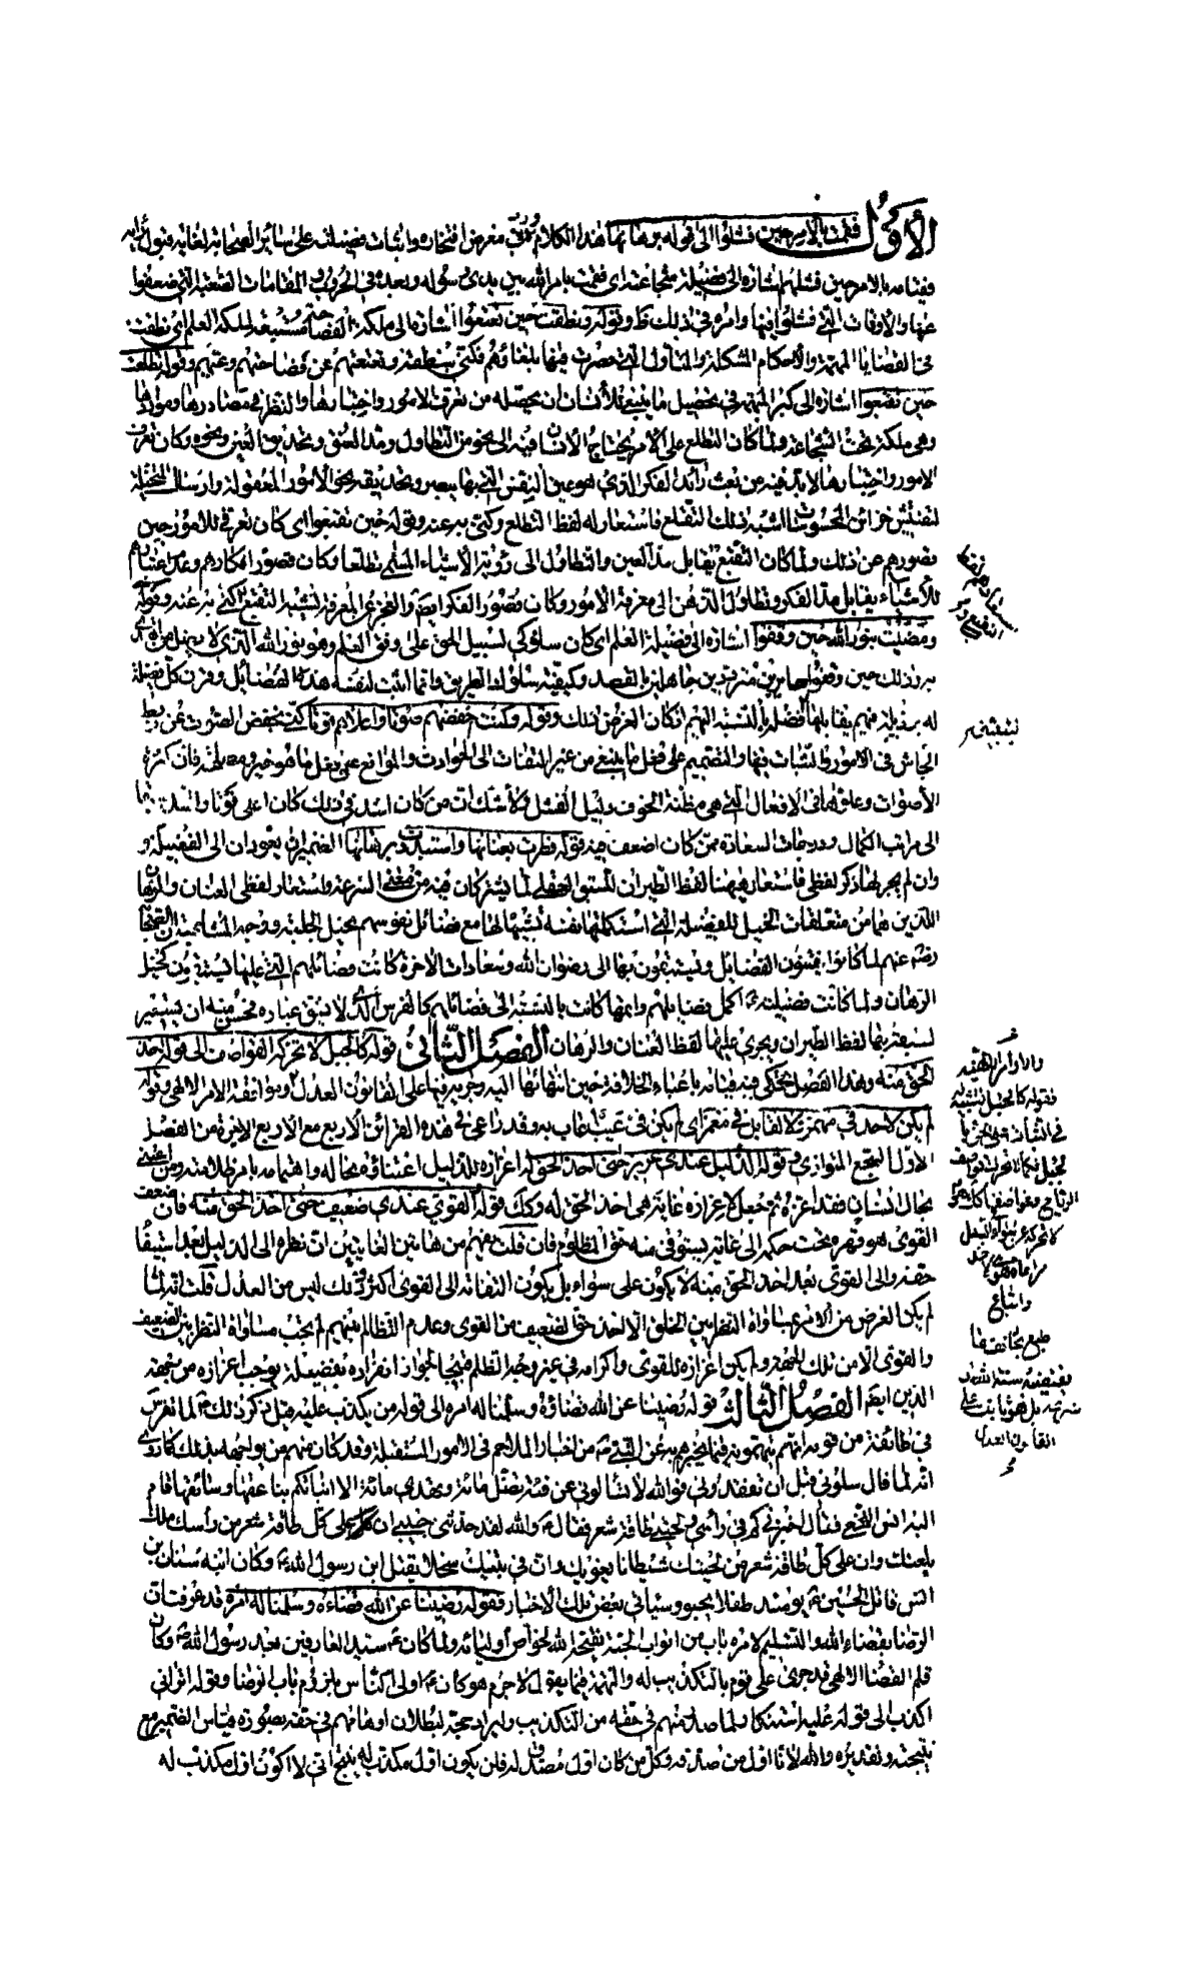 الأوّل فقمت بالامر حين فشلوا الى قوله برهانها هذا الكلام ورد في معرض افتخاره واثبات فضيلته على سائر الصحابة لغاية قبول رأيه
فقيامه بالامر حين فشلهم اشارة الى فضيلة شجاعته اى فقمت بامر الله بين يدى رسوله وبعده فى الحروب والمقامات الصعبة التى ضعفوا
عنها والاوقات التى فشلوا فيها وامره فى ذلك ظ وقوله ونطقت حين تعتعوا اشارة الى ملكة الفصاحة المستتبعة لملكة العلم اى نطقت
فى القضايا المهمة والاحكام المشكلة والمقاول التى حصرت فيها بلغاؤهم فكنى بنطقه وتعتعتهم عن فصاحتهم وعيهم وقوله تطلعت
حين تقبعوا اشارة الى كبر الهمة فى تحصيل ما ينبغى للانسان ان يحصله من تعرف الامور واختبارها والنظر فى مصادرها ومواردها
وهى ملكة تحت الشجاعة ولما كان التطلع على الامر يحتاج الانسان فيه الى نحو من التطاول ومد العنق وتحديق العين ونحوه وكان تعرف
الامور واختبارها لابد فيه من بعث رائد الفكر الذى هو عين النفس التى بها يبصر وتحديقه نحو الامور المعقولة وارسال المتخيلة
لتفتيش خزائن المحسوسات اشبه ذلك التطلع فاستعار له لفظ التطلع وكنى به عنه وقوله حين تقبعوا اى كان تعرفى للامور حين
قصورهم عن ذلك ولما كان التقبع يقابل مد العين والتطاول الى رؤية الاشياء المسمى تطلعا وكان قصور افكارهم وعدم اعتبارهم
للاشياء يقابل مد الفكر وتطاول الذهن الى معرفة الامور وكان قصور الفكر ايضا والعجز عن المعرفة يشبه التقبع كنى به عنه وقوله
ومضيت بنور الله حين وقفوا اشارة الى فضيلة العلم اى كان سلوكى لسبيل الحق على وفق العلم وهو نور الله الذى لا يضل من اهتدى
به وذلك حين وقفوا حايرين مترددين جاهلين بالقصد وكيفية سلوك الطريق وانما اثبت لنفسه هذه الفضائل وقرن كل فضيلة
له برذيلة فيهم يقابلها لفضله بالنسبة اليهم اذ كان الغرض ذلك وقوله وكنت اخفضهم صوتا واعلاهم فوتا كنى بخفض الصوت عن ربط
الجاش فى الامور والثبات فيها والتصميم على فعل ما ينبغى من غير التفات الى الحوادث والموانع عن فعل ما هو خير ومصلحة فان كثرة
الاصوات وعلوها فى الافعال التى هى مظنة الخوف دليل الفشل ولا شك ان من كان اشد فى ذلك كان اعلى فوتا واشد سبقا
الى مراتب الكمال ودرجات السعادة ممن كان اضعف فيه قوله فطرت بعنانها واستبددت برهانها الضميران يعودان الى الفضيلة و
وان لم يجر لها ذكر لفظى فاستعار ههنا لفظ الطيران للسبق العقلى لما يشتركان فيه من معنى السرعة واستعار لفظى العنان والرهان
اللذين هما من متعلقات الخيل للفضيلة التى استكملتها نفسه تشبيها لها مع فضائل نفوسهم بخيل الحلبة ووجه المشابهة ان الصحابة
رضى عنهم لما كانوا يقتنون الفضائل ويستبقون بها الى رضوان الله وسعادات الاخرة كانت فضائلهم التى عليها يستبقون كخيل
الرهان ولما كانت فضيلته ع اكمل فضايلهم واتمها كانت بالنسبة الى فضائلهم كالفرس الذى لا يشق غباره فحسن منه ان يستعير
لسبقه بها لفظ الطيران ويجرى عليها لفظ العنان والرهان الفصل الثانى قوله كالجبل لا تحركه القواصف الى قوله آخذ
الحق منه وهذا الفصل يحكى فيه قيامه باعباء الخلافة حين انتهائها اليه وجريه فيها على القانون العدل وموافقة الامر الالهى وقوله
لم يكن لاحد فى مهمز ولا لقايل فى مغمز اى لم يكن فى عيب اعاب به وقد راعى فى هذه القرائن الاربع مع الاربع الاخيرة من الفصل
الاول السجع المتوازى وقوله الذليل عندى عزيز حتى آخذ الحق له اعزازه للذليل اعتناؤه بحاله واهتمامه بامر ظلامته ومن اعتنى
بحال انسان فقد اعزه ثم جعل لاعزازه غاية هى اخذ الحق له وكذلك قوله القوى عندى ضعيف حتى آخذ الحق منه فان ضعف
القوى هو قهره تحت حكمه الى غاية يستوفى منه حق المظلوم فان قلت يفهم من هاتين الغايتين ان نظره الى الذليل بعد استيفاء
حقه والى القوى بعد اخذ الحق منه لا يكون على سواء بل يكون التفاته الى القوى اكثر وذلك ليس من العدل قلت انه لما
لم يكن الغرض من الامر بمساواة النظر بين الخلق الا اخذ حق الضعيف من القوى وعدم التظالم بينهم لم يجب مساواة النظر بين الضعيف
والقوى الا من تلك الجهة ولم يكن اعزازه للقوى واكرامه فى غير وجه الظلم قبيحا لجواز انفراده بفضيلة يوجب اعزازه من جهة
الدين ايضا الفصل الثالث قوله رضينا عن الله قضاؤه وسلمنا له امره الى قوله من يكذب عليه قيل ذكر ذلك ع لما تفرس
فى طائفة من قومه انهم يتهمونه فيما يخبرهم به عن النبى ص من اخبار الملاحم فى الامور المستقبلة وقد كان منهم من يواجهه بذلك كما روى
انه لما قال سلونى قبل ان تفقدونى فوالله لا تسألونى عن فئة تضل مائة وتهدى مائة الا انبأتكم بناعقها وسائقها قام
اليه انس النخعى فقال اخبرنى كم فى رأسى ولحيتى طاقة شعر فقال ع والله لقد حدثنى حبيبى ان على كل طاقة شعر من رأسك ملك
يلعنك وان على كل طاقة شعر من لحيتك شيطانا يغويك وان فى بيتك سخلا يقتل ابن رسول الله ص وكان ابنه سنان بن
انس قاتل الحسين ع يومئذ طفلا يحبو وسيأتى بعض تلك الاخبار فقوله رضينا عن الله قضاءه وسلمنا له امره قد عرفت ان
الرضا بقضاء الله والتسليم لامره باب من ابواب الجنة يفتحه الله لخواص اوليائه ولما كان ع سيد العارفين بعد رسول الله ص وكان
قلم القضاء الالهى قد جرى على قوم بالتكذيب له والتهمة فيما يقول لا جرم هو كان ع اولى الناس بلزوم باب الرضا وقوله اترانى
اكذب الى قوله عليه استنكار لما صدر منهم فى حقه من التكذيب وايراد حجة لبطلان اوهامهم فى حقه بصورة قياس الضمير مع
نتيجته وتقديره والله لانا اول من صدقه وكل من كان اول مصدق له فلن يكون اول مكذب له ينتج انى لا اكون اول مكذب له
والاوامر الالهية
فقوله كالجبل تشبيه
فى الثبات على الحق با
لجبل فكما لا تحركه قواصف
الرياح وعواصفها كذلك هو
لا تحركه عن سواء السبيل
مراعاة هوى لاحد
واتباع
طبع يخالف ما
يقتضيه سنة الله و
شرعه بل هو ثابت على
القانون العدل